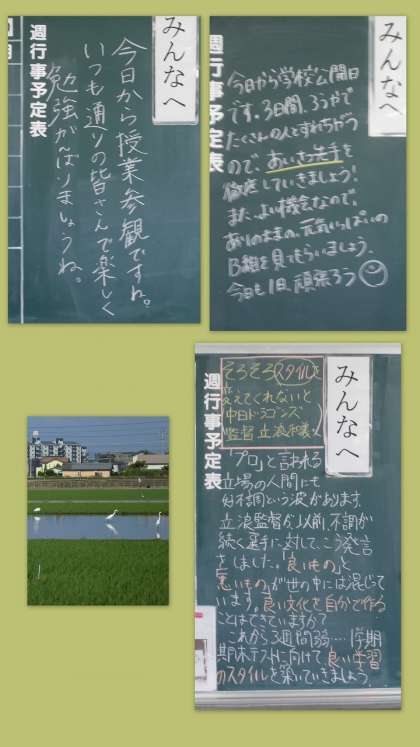 みんなへ
週行事予定表
今日から授業参観ですね。
いつも通りの皆さんで楽しく
勉強がんばりましょうね。
みんなへ
週行事予定表
今日から学校公開日
です。3日間、ろうかで
たくさんの人とすれちがう
ので、あいさつ先手を
徹底していきましょう!
また、よい機会なので、
ありのままの、元気いっぱいの
B組を見てもらいましょう。
今日も1日、頑張ろう
みんなへ
週行事予定表
そろそろスタイルを
変えてくれないと
中日ドラゴンズ
監督 立浪和義
「プロ」と言われる
立場の人間にも
好不調という波があります。
立浪監督が以前、不調が
続く選手に対して、こう発言
をしました。「良いもの」と
「悪いもの」が世の中には混じって
います。「良い文化を自分で作る
ことはできていますか?
これから3週間弱…学期
期末テストに向けて良い学習
のスタイルを築いていきましょう。